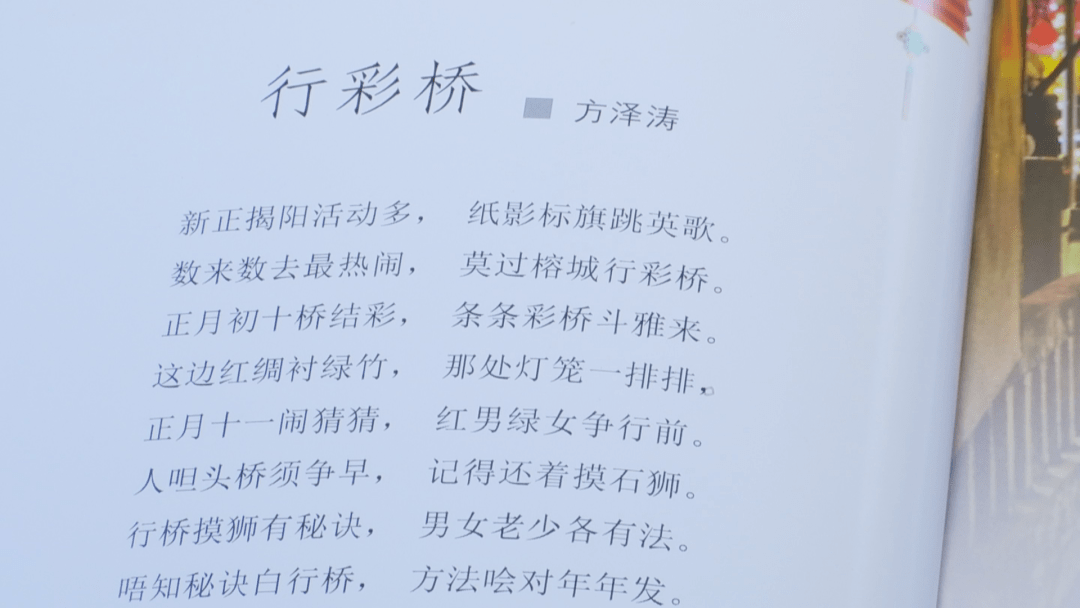 行彩桥 ■ 方泽涛
新正揭阳活动多， 纸影标旗跳英歌。
数来数去最热闹， 莫过榕城行彩桥。
正月初十桥结彩， 条条彩桥斗雅来。
这边红绸衬绿竹， 那处灯笼一排排。
正月十一闹猜猜， 红男绿女争行前。
人呾头桥须争早， 记得还着摸石狮。
行桥摸狮有秘诀， 男女老少各有法。
唔知秘诀白行桥， 方法哙对年年发。